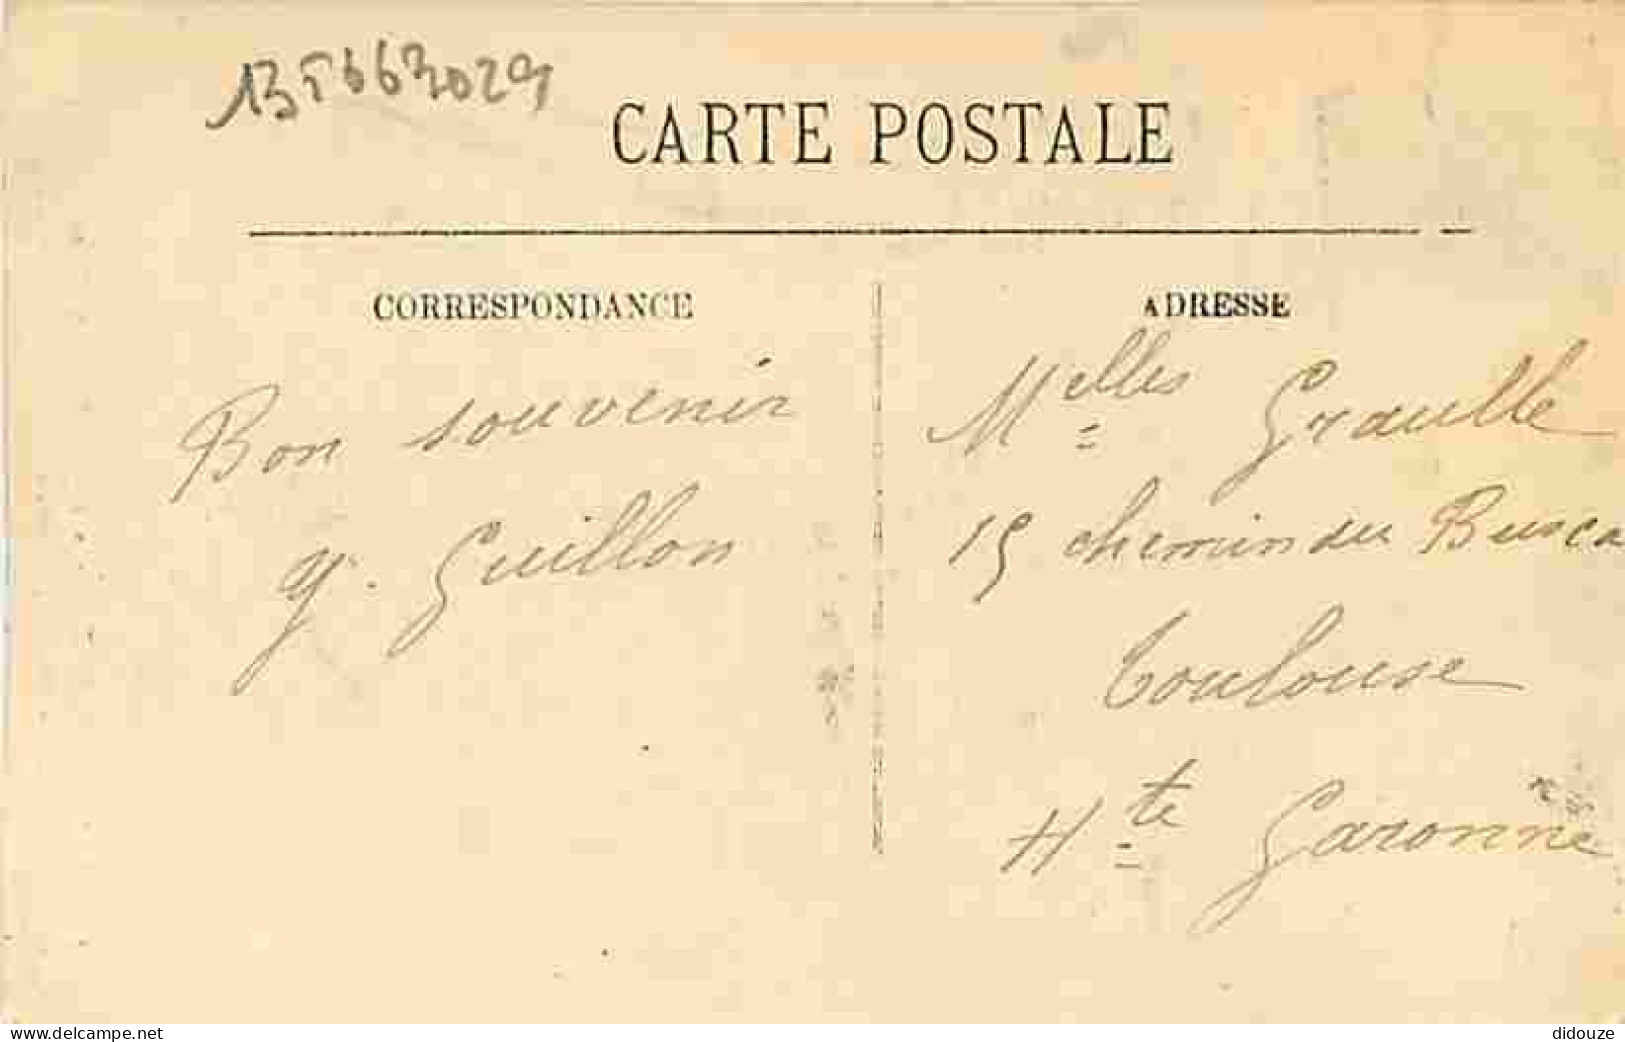 1356663029
CARTE POSTALE
CORRESPONDANCE
Bon souvenir
g. Guillon
ADRESSE
Melles Graulle
15 chemin du Busca
Toulouse
Hte Garonne
www.delcampe.net
didouze